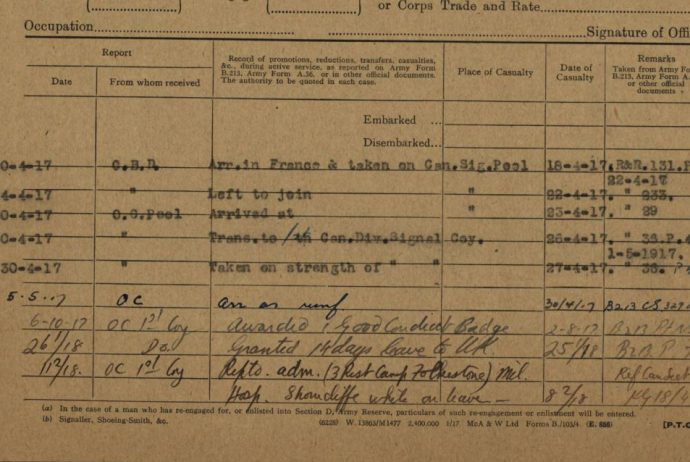 or Corps Trade and Rate
Occupation
Signature of Offi
Report
Date
From whom received
Record of promotions, reductions, transfers, casualties,
&c., during active service, as reported on Army Form
B.213, Army Form A.36, or in other official documents.
The authority to be quoted in each case.
Place of Casualty
Date of
Casualty
Remarks
Taken from Army F
B.213, Army Form A
or other official
documents
Embarked ...
Disembarked...
0-4-17 C.B.D. Arr.in France & taken on Can.Sig.Pool 18-4-17. R&R.131.P
22-4-17
4-4-17 " Left to join " 22-4-17. " 233.
0-4-17 O.C.Pool Arrived at " 23-4-17. " 29
0-4-17 " Trans.to Can.Div.Signal Coy. 26-4-17. " 36.P.4
1-5-1917.
30-4-17 " Taken on strength of " " " 27-4-17. " 36.
5.5.17 OC arr as reinf 30/4/17 B213
6-10-17 OC 1st Coy Awarded 1 Good Conduct Badge 2-8-17
26/1/18 Do. Granted 14 days leave to UK 25/1/18
OC 1st Coy Repts. adm. (3 Rest Camp Folkestone) Mil.
Hosp. Shorncliffe while on leave —
(a) In the case of a man who has re-engaged for, or enlisted into Section D, Army Reserve, particulars of such re-engagement or enlistment will be entered.
(b) Signaller, Shoeing-Smith, &c.
(6225) W. 13863/M1477 2,400,000 1/17 McA & W Ltd Forms B./103/4 (E. 856)
[P.T.O